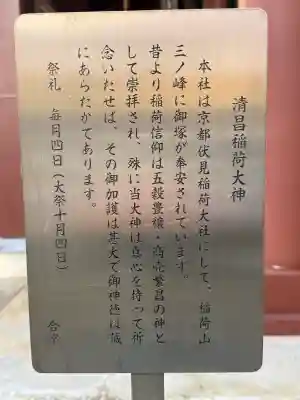 清昌稲荷大神
本社は京都伏見稲荷大社にして、稲荷山
三ノ峰に御塚が奉安されています。
昔より稲荷信仰は五穀豊穣・商売繁昌の神と
して崇拝され、殊に当大神は真心を持って祈
念いたせば、その御加護は甚大で御神徳は誠
にあらたかであります。
祭礼 毎月四日(大祭十月四日)